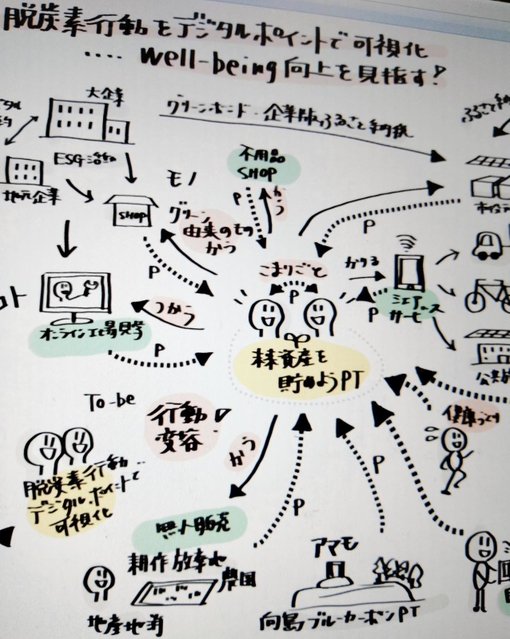 脱炭素行動をデジタルポイントで可視化
‥‥ well-being向上を見指す!
大企業
グリーンボンド・企業版ふるさと納税
ふるさと納税
ESG活動
地元企業
不用品
SHOP
モノ
SHOP
グリーン
由来のもの
かう
P
かう
P
P
こまりごと
P
かりる
P
シェアー
サービ
つかう
オンライン工場見学
P
未来資産を
貯めようPT
To-be
行動
変容
かう
脱炭素行動
デジタルポイントで
可視化
健康づくり
無人販売
耕作放棄地
農園
地産地消
P
P
アマモ
向島ブルーカーボンPT